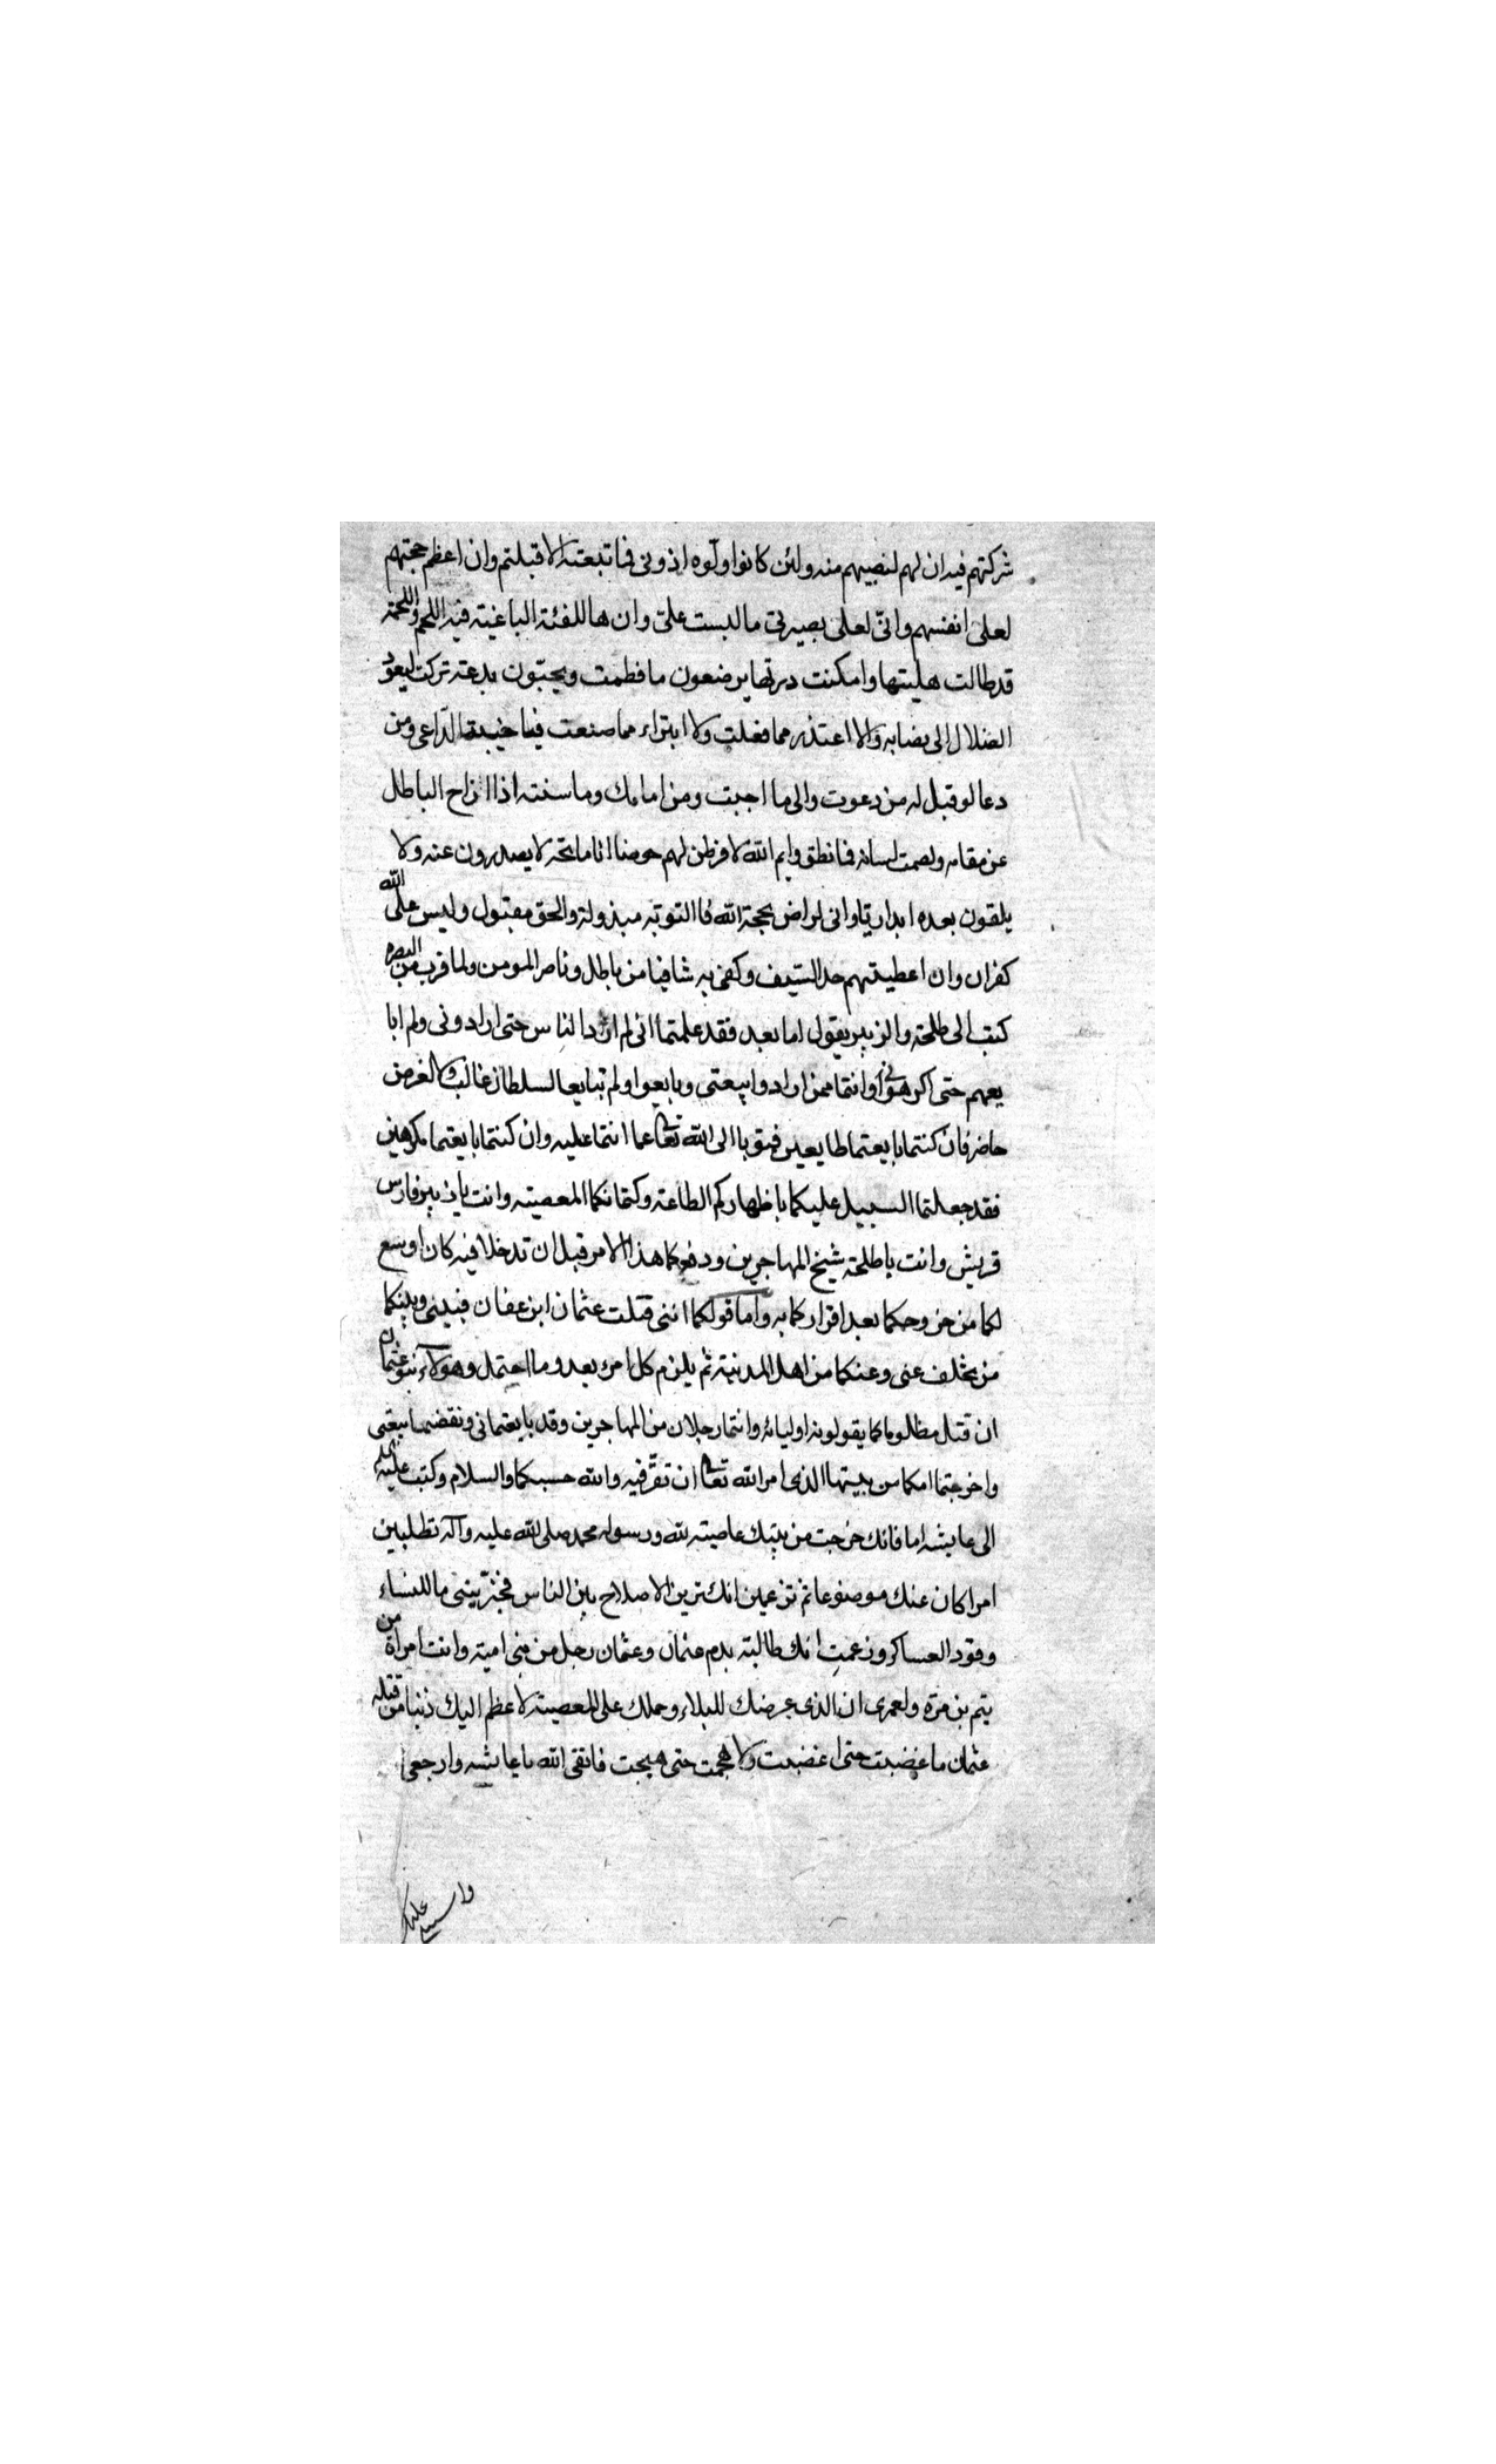 شركتهم فيه ان لهم لنصيبهم منه ولئن كانوا ولّوه اذ ونى فما تبعته الا قبلتم وان اعظم حجتهم
لعلى انفسهم وانّى لعلى بصيرتى ما لبست علىّ وان ها للفئة الباغية فيه اللحم واللحمة
قد طالت هلبتها وامكنت درتها يرضعون ما فطمت ويحيّون بدعة تركت ليعود
الضلال الى نصابه ولا اعتذر مما فعلت ولا ابتراء مما صنعت فيا خيبة الدّاعى ومن
دعا لو قيل له من دعوت والى ما اجبت ومن امامك وما سنته اذا ازاح الباطل
عن مقامه ولصمت لسانه فما نطق وايم الله لافرطن لهم حوضا انا ماتحه لا يصدرون عنه ولا
يلقون بعده ابدا ريّا وانى لراض بحجة الله فا التوبة مبذولة والحق مقبول وليس على الله
كفران وان اعطيتهم حد السّيف وكفى به شافيا من باطل وناصر المومن ولما قرب من البصره
كتب الى طلحة والزبير يقول اما بعد فقد علمتما انى لم ارد الناس حتى ارادونى ولم ابا
يعهم حتى اكرهونى وانتما ممن ارادوا بيعتى وبايعوا ولم تبايعا لسلطان غالب ولا لغرض
حاضر فان كنتما بايعتما طايعين فتوبا الى الله تعالى عما انتما عليه وان كنتما بايعتما مكرهين
فقد جعلتما السبيل عليكما باظهاركم الطاعة وكتمانكما المعصيته وانت يا زبير فارس
قريش وانت يا طلحة شيخ المهاجرين ودفعكما هذا الامر قبل ان تدخلا فيه كان اوسع
لكما من خروجكما بعد اقراركما به واما قولكما اننى قتلت عثمان ابن عفان فبينى وبينكما
من تخلف عنى وعنكما من اهل المدينة ثم يلزم كل امرء بعد وما احتمل وهولاء بنو عثمان
ان قتل مظلوما كما يقولونه اوليائه وانتما رجلان من المهاجرين وقد بايعتمانى ونقضتما بيعتى
واخرجتما امكما من بيتها الذى امر الله تعالى ان تقرّ فيه والله حسبكما والسلام وكتب عليه السلم
الى عايشه اما فانك خرجت من بيتك عاصيته لله ورسوله محمد صلى الله عليه وآله تطلبين
امرا كان عنك موضوعا ثم تزعمين انك ترين الاصلاح بين الناس فخبّرينى ما للنساء
وقود العساكر وزعمت انك طالبته بدم عثمان وعثمان رجل من بنى اميه وانت امراة من
تيم بن مرّه ولعمرى ان الذى عرضك للبلاء وحملك على المعصيته لاعظم اليك ذنبا من قتله
عثمان ما غضبت حتى اغضبت ولا هجمت حتى هيجت فاتقى الله يا عايشه وارجعى
واسبلى عليك